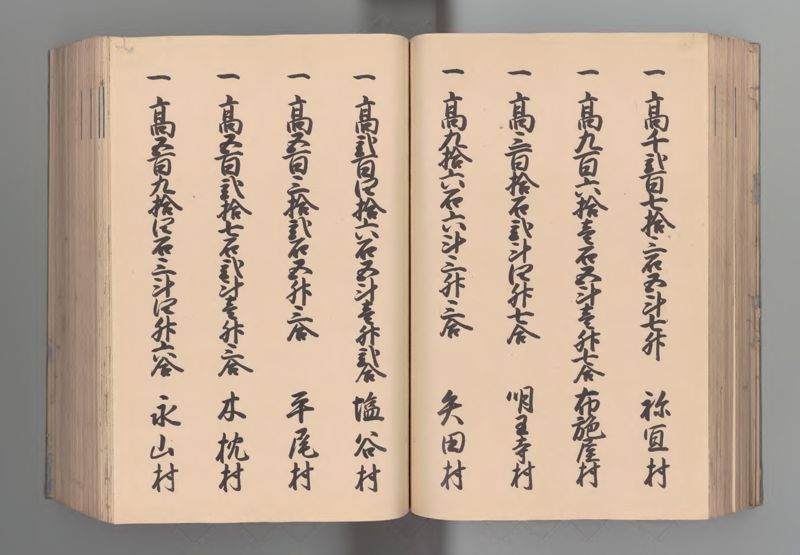 一 高千弐百七拾三石五斗七升 祢宜村
一 高九百六拾壱石五斗壱升七合 布施屋村
一 高三百拾石弐斗四升七合 明王寺村
一 高九拾六石六斗三升三合 矢田村
一 高弐百四拾六石五斗壱升弐合 塩谷村
一 高五百三拾弐石五升三合 平尾村
一 高五百弐拾七石弐斗壱升三合 木枕村
一 高五百九拾四石三斗四升六合 永山村